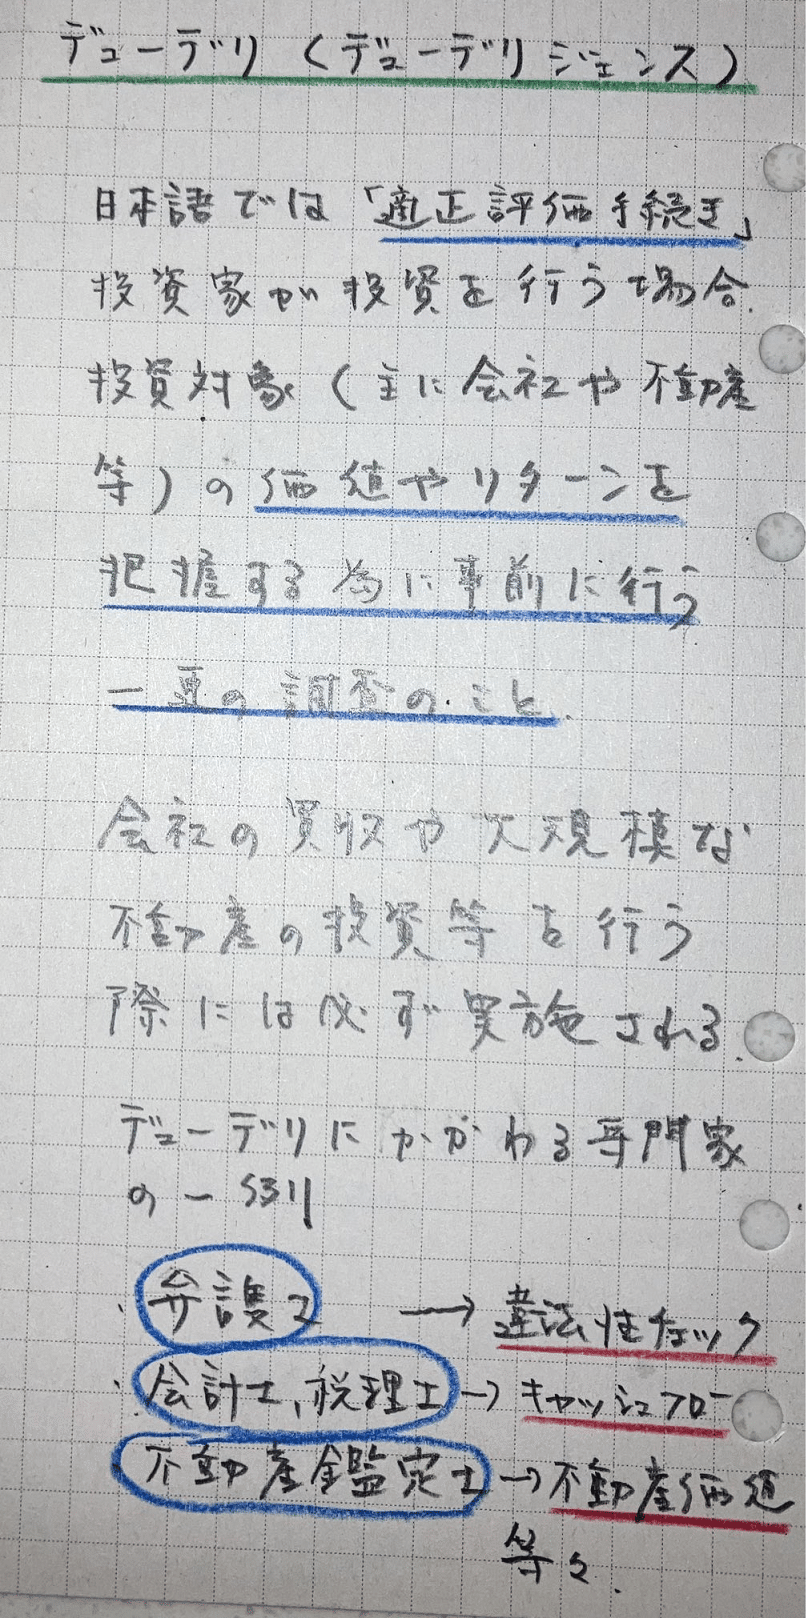 デューデリ（デューデリジェンス）
日本語では「適正評価手続き」
投資家が投資を行う場合、
投資対象（主に会社や不動産
等）の価値やリターンを
把握する為に事前に行う
一重の調査のこと。
会社の買収や大規模な
不動産の投資等を行う
際には必ず実施される。
デューデリにかかわる専門家
の一例
・弁護士 → 違法性チェック
・会計士、税理士 → キャッシュフロー
・不動産鑑定士 → 不動産価値
等々.